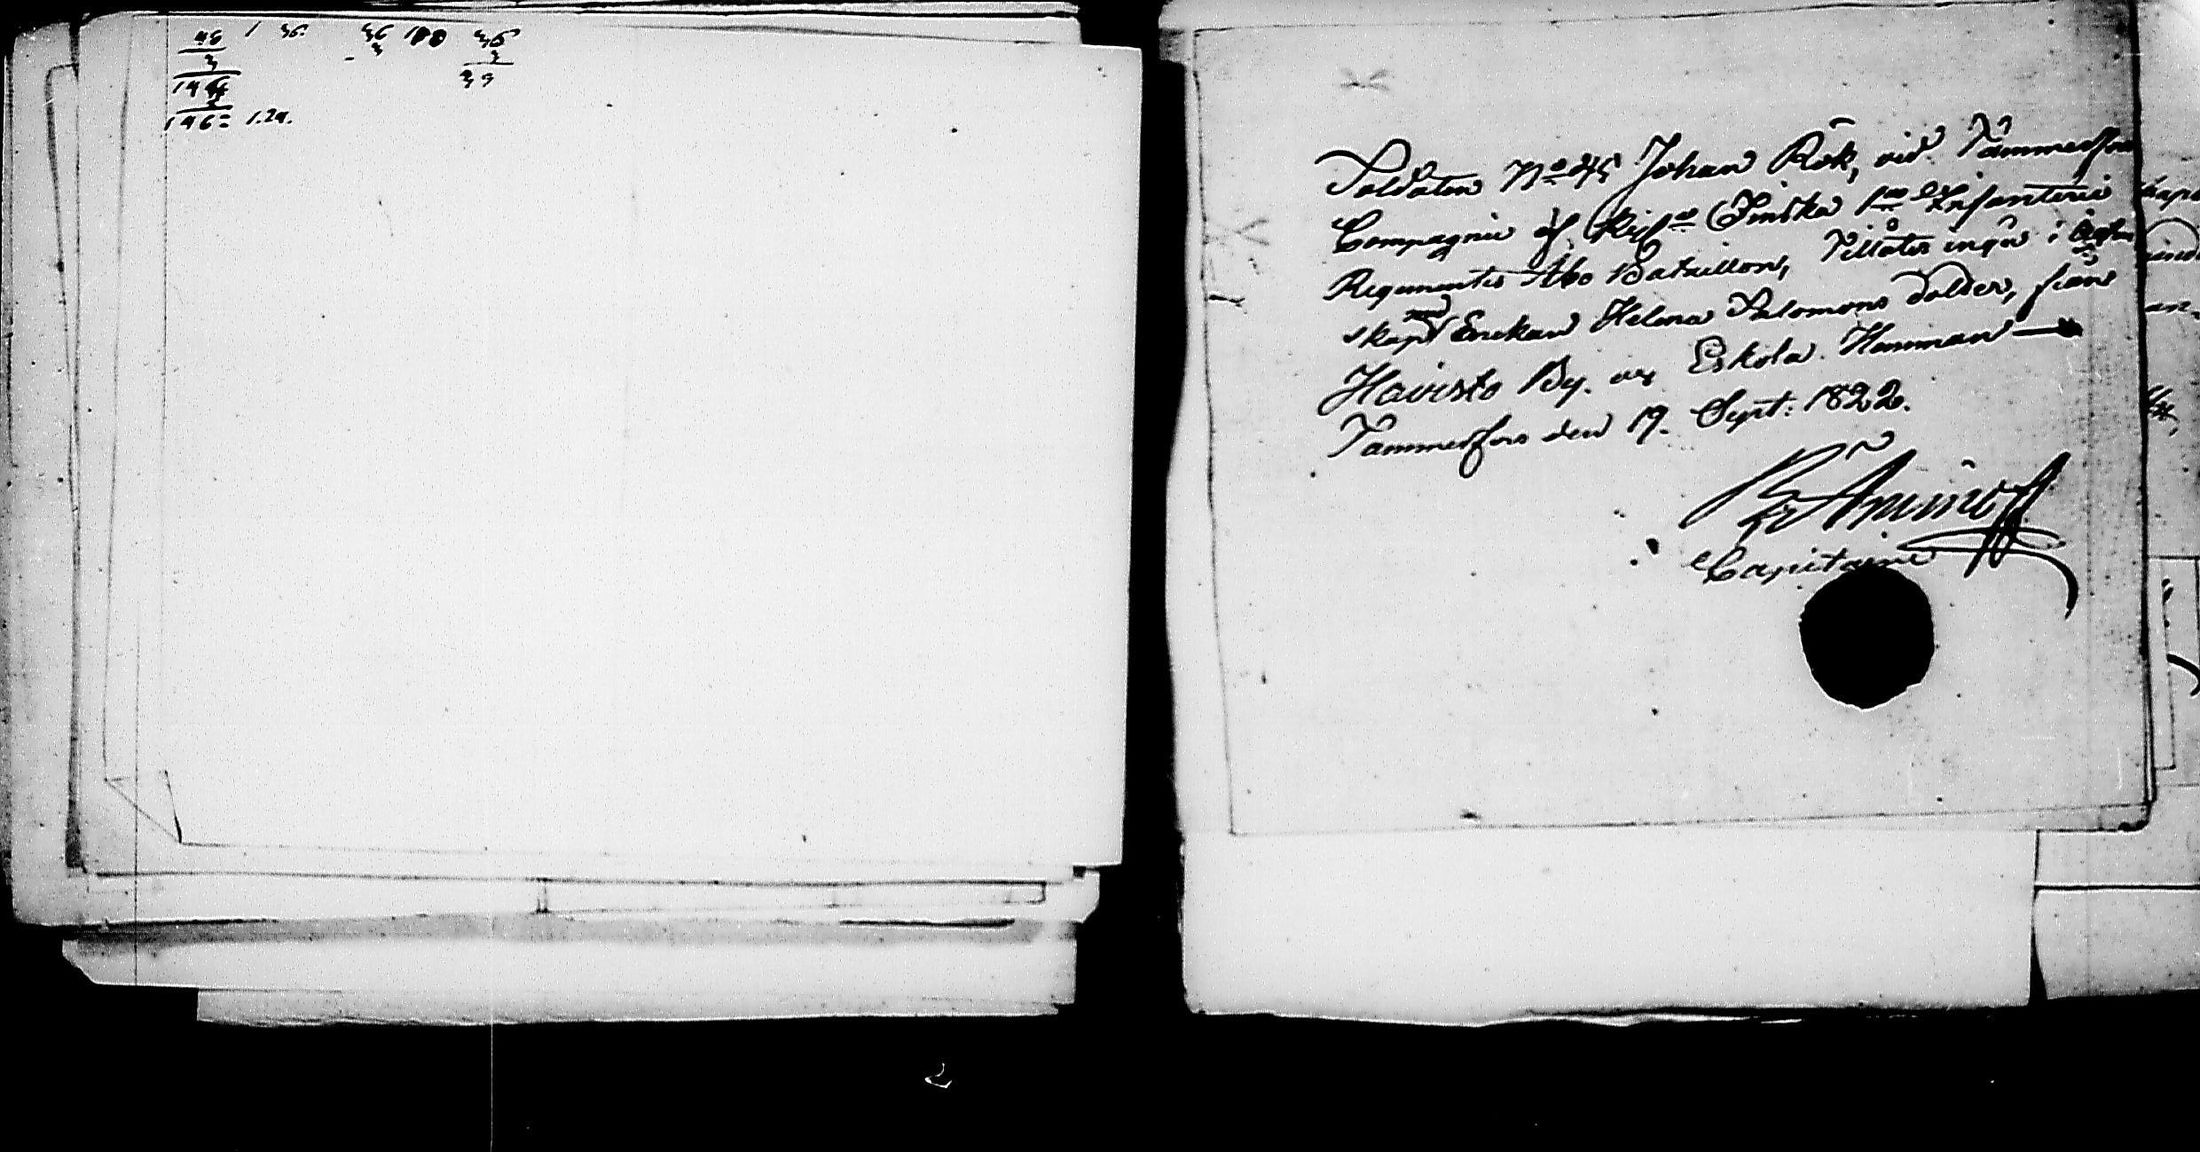 48 1 36. 36 100 36
3 3 3
144 39
2
146= 1.24.
Soldaten No 45 Johan Rök, vid Tammerfors
Compagnie af Kejs Finska 1sta Infanterie
Regementes Åbo Bataillon, Tillåtes ingå i Ägten
skap med Enckan Helena Salomons dotter, från
Havisto By. og Eskola Hemman —
Tammerfors den 19. Sept: 1822.
Aminoff
Capitaine